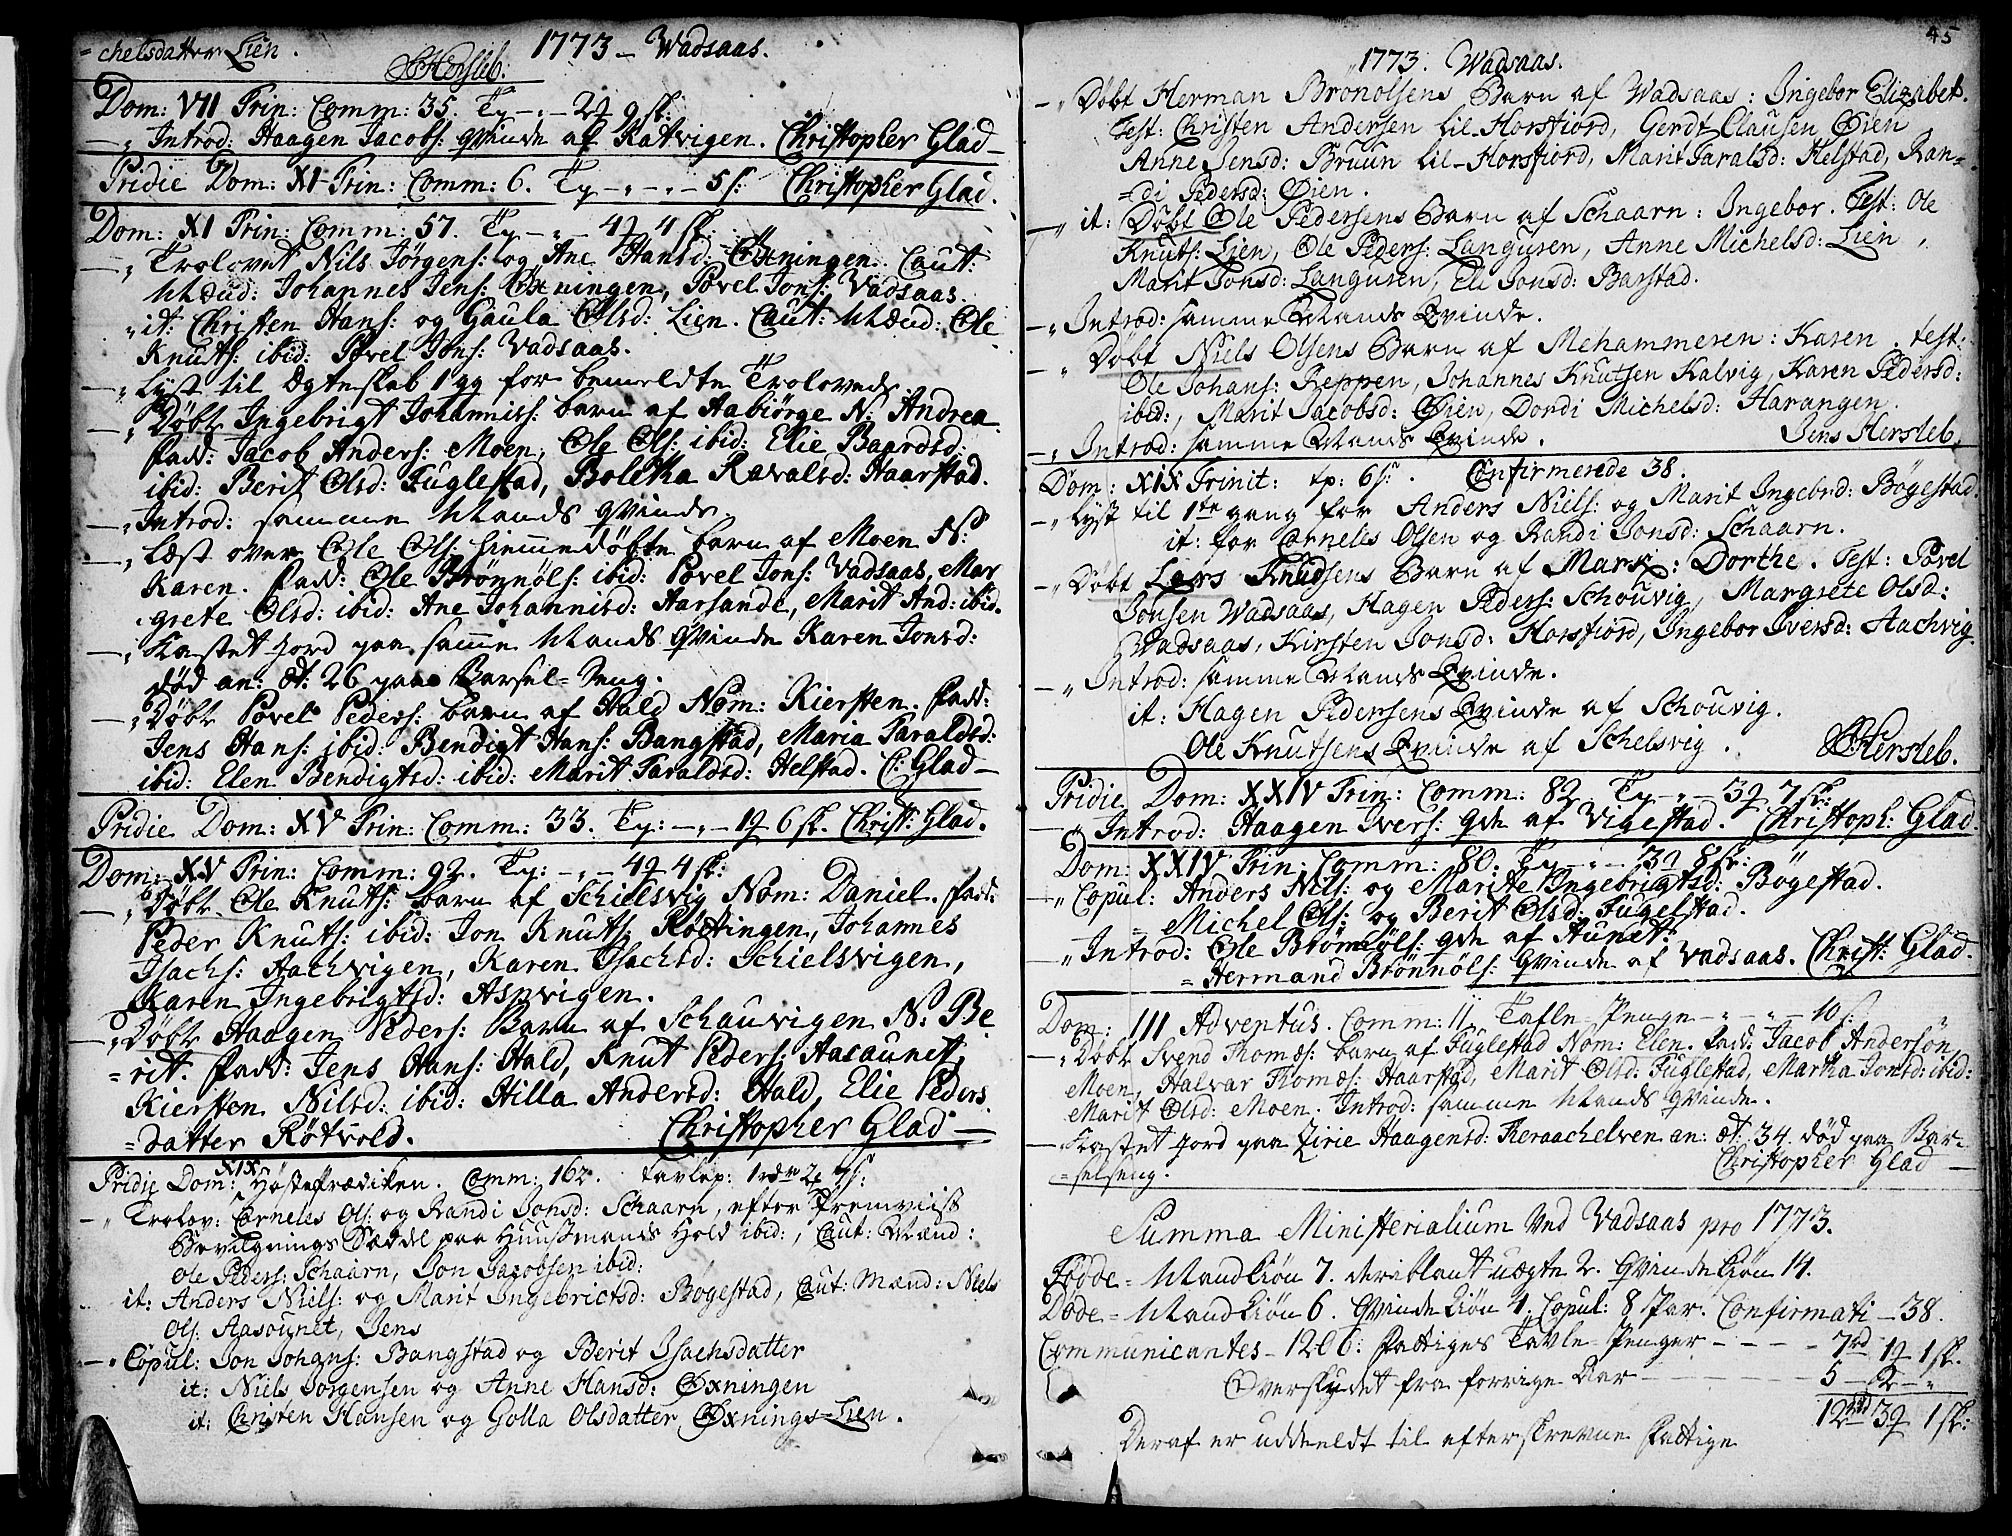 =chelsdatter Lien. 1773 – Wadsaas.
Hersleb.
Dom: VII Trin: Comm: 35. Tp – „ – 2 ort 9 sk:
– „ Introd: Haagen Jacobs: qvinde af Katvigen. Christopher Glad –
Pridie Dom: XI Trin: Comm: 6. Tp – „ – „ – 5 s: Christopher Glad.
Dom: XI Trin: Comm: 57. Tp – „ – 4 ort 4 sk:
– „ Trolovet Nils Jörgens: og Ane Hansd: Öxningen. Caut:
Mænd: Johannes Jens: Öxningen, Povel Jons: Vadsaas.
„ it: Christen Hans: og Gaula Olsd: Lien. Caut: Mænd: Ole
Knuts: ibid: Povel Jons: Vadsaas.
– „ Lyst til Ægteskab 1 gg for bemeldte Trolovede.
– „ Döbt Ingebrigt Johanniss: barn af Aabiörge N: Andrea.
Fadd: Jacob Anders: Moen, Ole Ols: ibid: Elie Baardsd:
ibid: Berit Olsd: Fuglestad, Boletha Ravalsd: Haarstad.
– „ Introd: samme Mands qvinde.
– „ Læst over Ole Ols: hiemmedöbte barn af Moen N:
Karen. Fadd: Ole Brönnöls: ibid: Povel Jons: Vadsaas, Mar
grete Olsd: ibid: Ane Johannisd: Aarsande, Marit And: ibid.
– „ Kastet Jord paa samme Mands Qvinde Karen Jonsd:
död an: æt: 26 paa Barsel-Seng.
– „ Döbt Povel Peders: barn af Hald Nom: Kiersten. Fadd:
Jens Hans: ibid: Bendigt Hans: Bangstad, Maria Taraldsd:
ibid: Elen Bendigtsd: ibid: Marit Taraldsd: Helstad. C: Glad –
Pridie Dom: XV Trin: Comm: 33. Tp: – „ – 1 ort 6 sk. Christ: Glad.
Dom: XV Trin: Comm: 92. Tp: – „ – 4 ort 4 sk:
– „ Döbt Ole Knuts: barn af Schielsvig Nom: Daniel. Fadd:
Peder Knuts: ibid: Jon Knuts: Röttingen, Johannes
Isachs: Aachvigen, Karen Isachsd: Schielsvigen,
Karen Ingebrigtsd: Aspvigen.
– „ Döbt Haagen Peders: Barn af Schauvigen N: Be
=rit. Fadd: Jens Hans: Hald, Knut Peders: Aasaunet,
Kiersten Nilsd: ibid: Hilla Andersd: Hald, Elie Peders
=datter Rötvold. Christopher Glad –
Pridie Dom: XIX Höstefrædiken. Comm: 162. tavlep: 1 rdr 2 ort 7 s:
– „ Trolov: Corneles Ols: og Randi Jonsd: Schaarn, efter Fremviist
Bevilgnings Sæddel paa Huusmands Hold ibid:, Caut: Mænd:
Ole Peders: Schaarn, Jon Jacobsen ibid:
it: Anders Niels: og Marit Ingebrictsd: Bögestad, Caut: Mænd: Niels
Ols: Aasounet, Jens
– „ Copul: Jon Johans: Bangstad og Berit Isachsdatter
it: Niels Jorgensen og Anne Hansd: Øxningen
it: Christen Hansen og Golla Olsdatter Øxnings-Lien.
45
1773. Wadsaas.
– „ Döbt Herman Bronolsens Barn af Wadsaas: Ingebor Elizabet.
Test: Christen Andersen lil-Horsfiord, Gerdt Clausen Øien
Anne Jensd: Bruun lil-Horsfiord, Marit Taralsd: Helstad, Ran=
=di Pedersd: Øien.
– „ it: Döbt Ole Pedersens Barn af Schaarn: Ingebor. Test: Ole
Knuts: Lien, Ole Peders: Languren, Anne Michelsd: Lien,
Marit Jonsd: Languren, Eli Jonsd: Barstad.
– „ Introd: samme Mands Qvinde.
– „ Döbt Niels Olsens Barn af Mehammeren: Karen. test:
Ole Johans: Reppen, Johannes Knutsen Kalvig, Karen Pedersd:
ibid:, Marit Jacobsd: Øien, Dordi Michelsd: Harangen.
– „ Introd: samme Mands Qvinde. Jens Hersleb.
Dom: XIX Trinit: tp: 6 s:. Confirmerede 38.
– „ Lyst til 1te gang for Anders Niels: og Marit Ingebrd: Bögestad.
it: for Corneles Olsen og Randi Jonsd: Schaarn.
– „ Döbt Lars Knudsens Barn af Marx: Dorthe. Test: Povel
Jonsen Wadsaas, Hagen Peders: Schouvig, Margrete Olsd:
Wadsaas, Kirsten Jonsd: Horsfiord, Ingebor Iversd: Aachvig.
– „ Introd: samme Mands Qvinde.
it: Hagen Pedersens Qvinde af Schouvig.
Ole Knutsens Qvinde af Schelsvig. Hersleb.
Pridie Dom: XXIV Trin: Comm: 82. Tp – „ – 3 ort 7 sk:
– „ Introd: Haagen Ivers: qde af Vigestad. Christoph: Glad.
Dom: XXIV Trin: Comm: 80. Tp – „ – 3 ort 8 sk:
– „ Copul: Anders Nils: og Marite Ingebrigtsd: Bögestad.
= Michel Ols: og Berit Olsd: Fugelstad.
– „ Introd: Ole Brönnöls: qde af Aunet:
= Hermand Brönnöls: Qvinde af Vadsaas. Christ: Glad.
Dom: III Adventus. Comm: 11 Tafle-Penge – „ – „ – 10 s:
– „ Döbt Svend Thomæs: barn af Fuglestad Nom: Elen. Fadd: Jacob Andersön
Moen, Halvar Thomæs: Haarstad, Marit Olsd: Fuglestad, Martha Jonsd: ibid:
Marit Olsd: Moen. Introd: samme Mands qvinde.
– Kastet Jord paa Zirie Haagensd: Keraachelven an: æt: 34. död paa Bar=
=selseng. Christopher Glad –
Summa Ministerialium Ved Vadsaas pro 1773.
Födde = Mandkiön 7. deriblant uægte 2. Qvindekiön 14.
Döde = Mandkiön 6. Qvindekiön 4. Copul: 8 Par. Confirmati – 38.
Communicantes – 1206: Fattiges Tavle-Penger – – – – 7rd 1 ort 1 sk.
Overskudet fra forrige Aar – – – – 5 – 2 – „
12rd 3 ort 1 sk:
Deraf er uddeeldt til efterskrevne Fattige